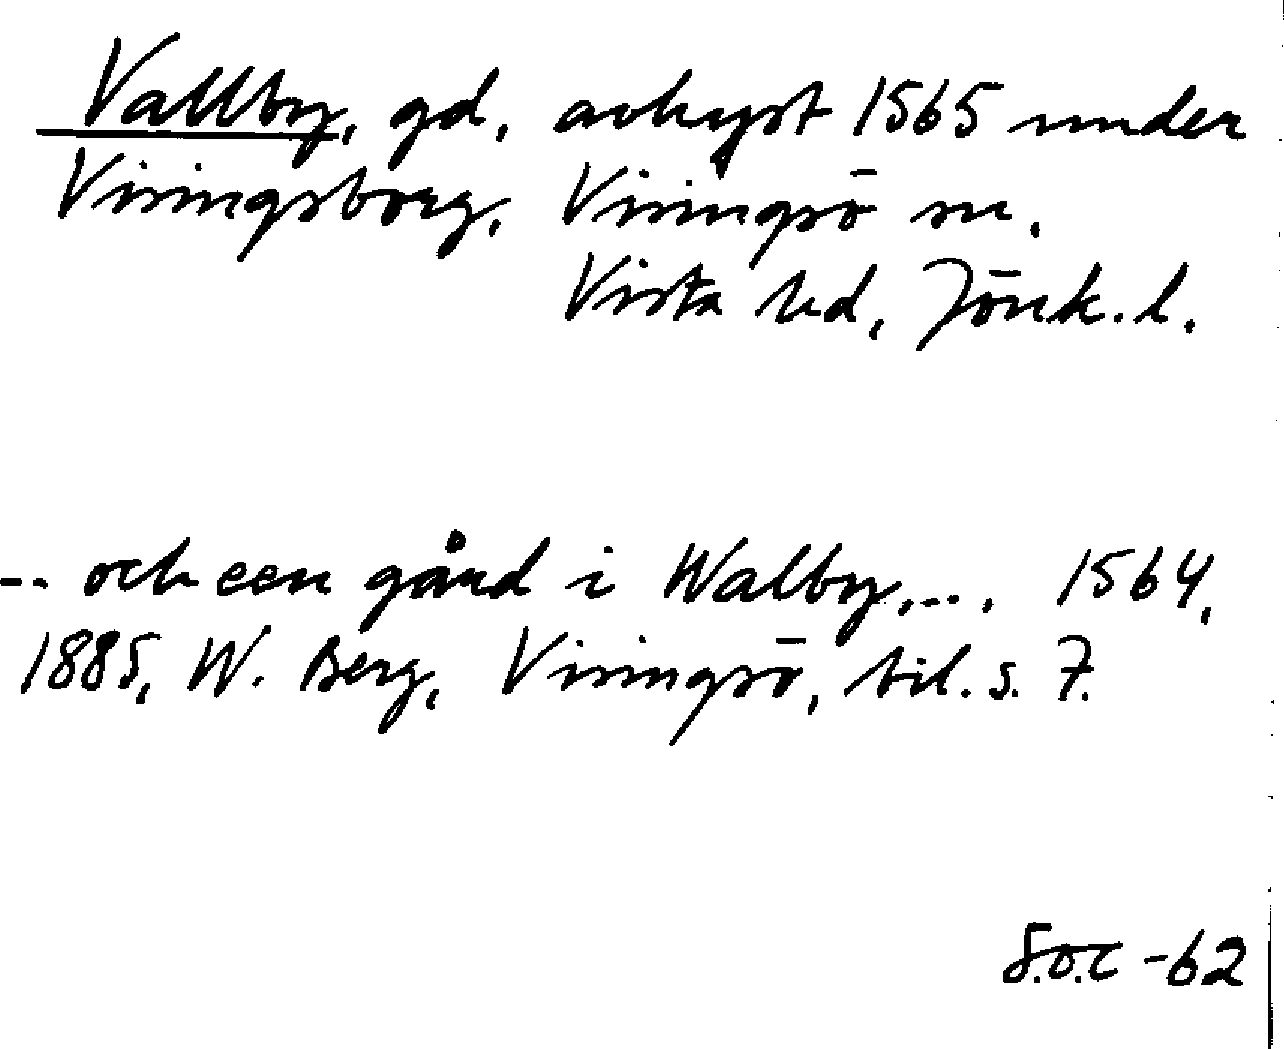 Vallby, gd, avhyst 1565 under
Visingsborg, Visingsö sn.
Vista hd, Jönk. l.
-- och een gård i Walby,... 1564,
1885, W. Berg, Visingsö, bil. s. 7.
S.Ö.C -62